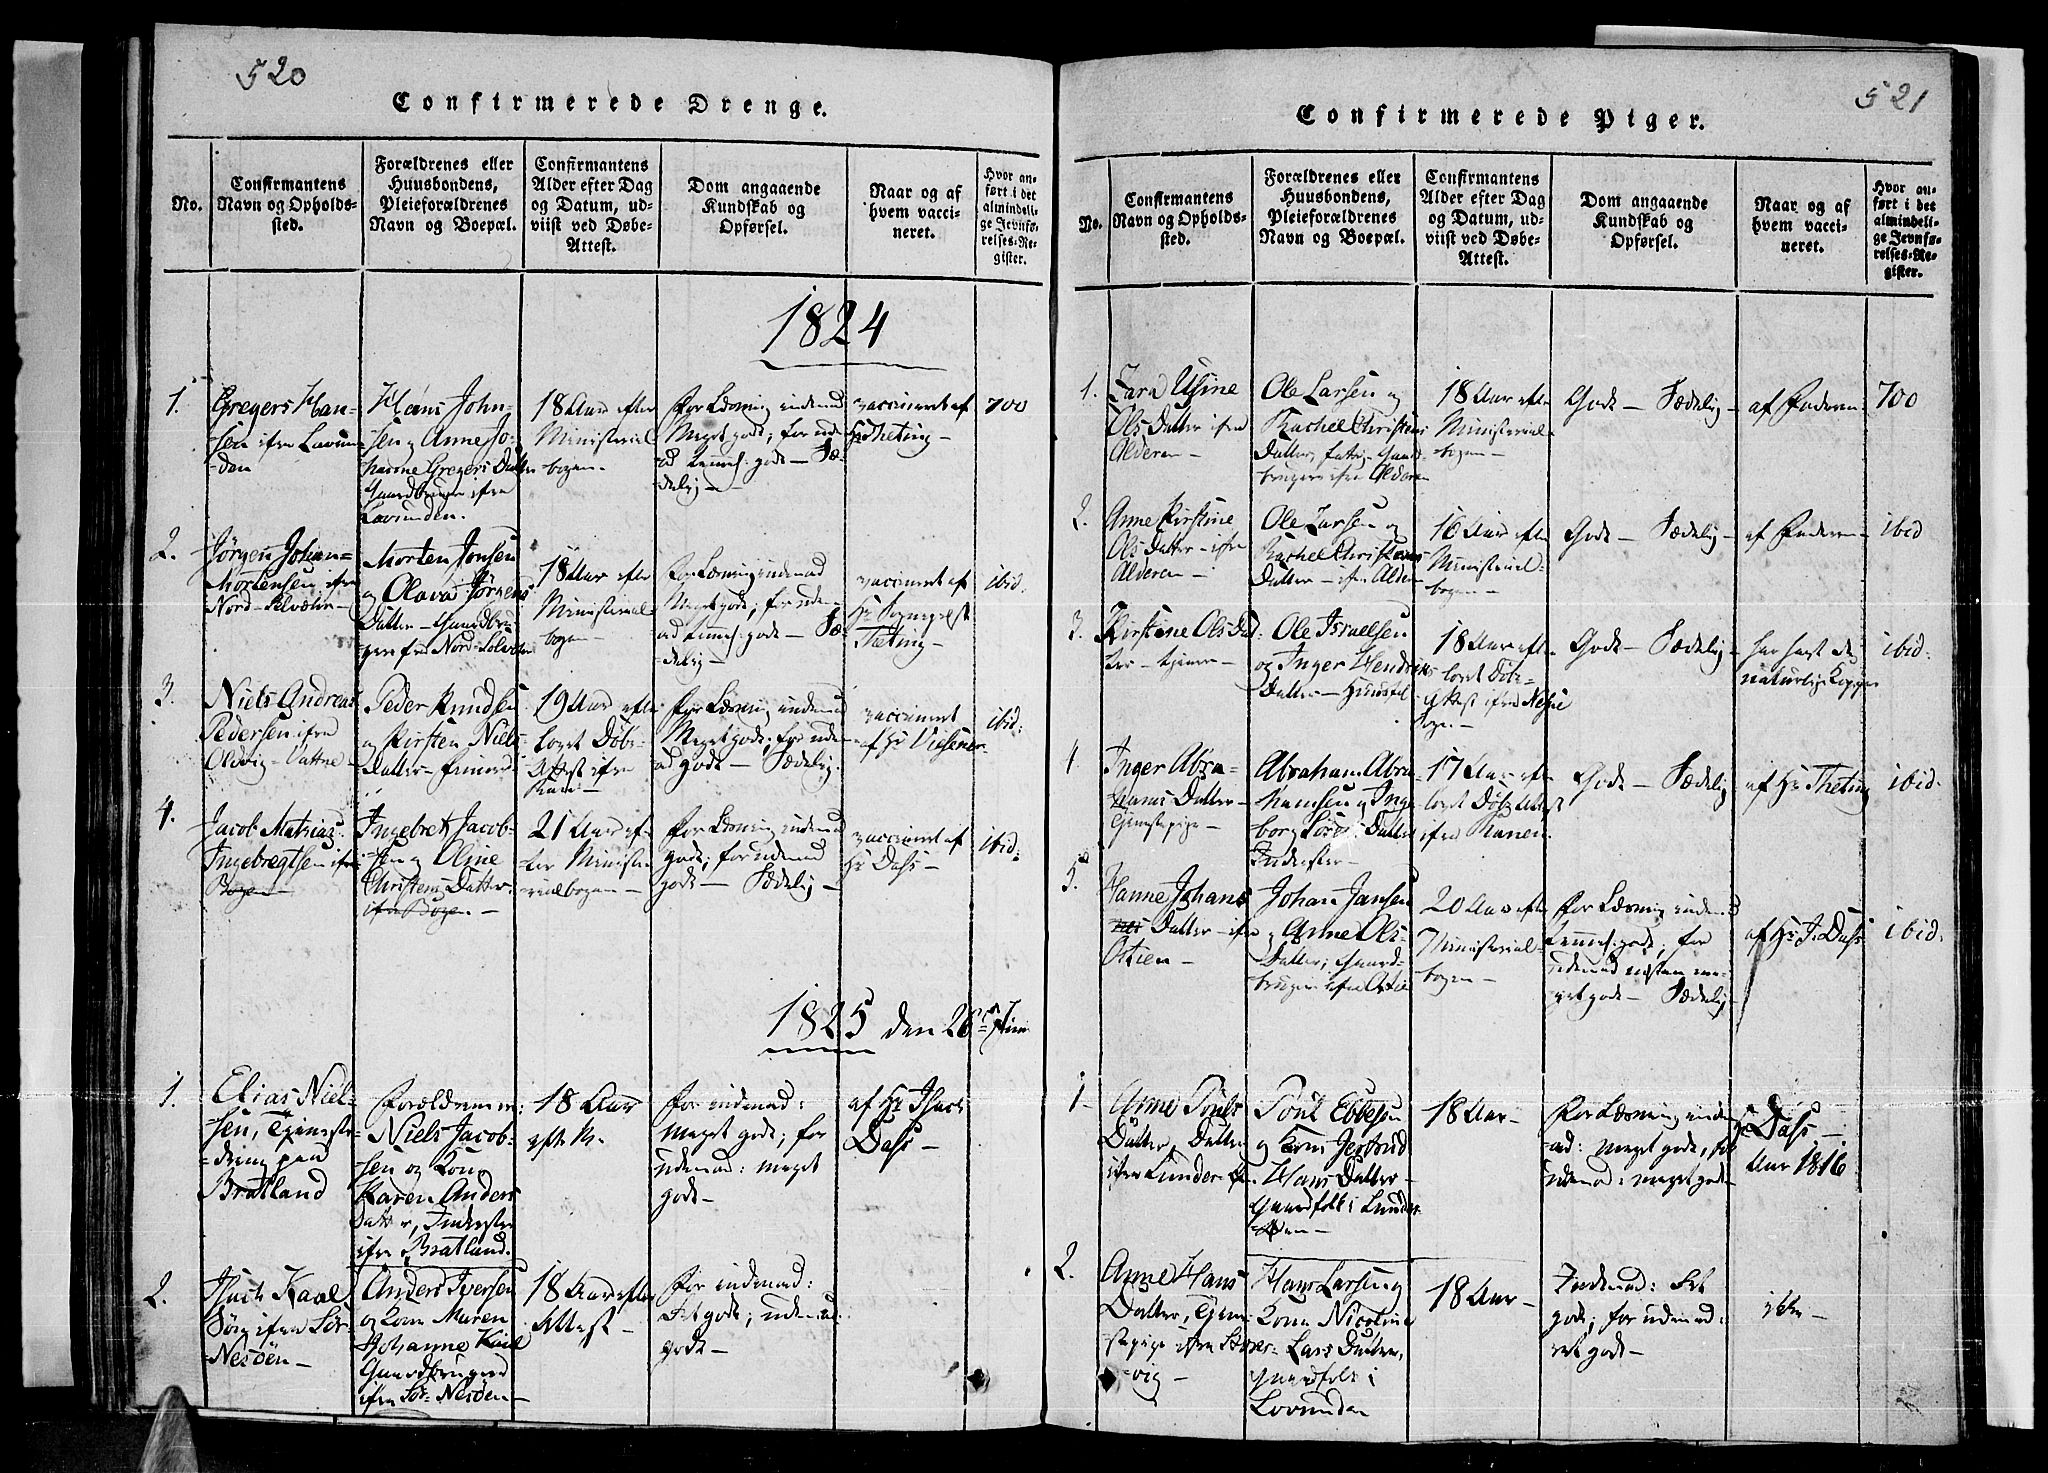 520
Confirmerede Drenge.
No.
Confirmantens
Navn og Opholds-
sted.
Forældrenes eller
Huusbondens,
Pleieforældrenes
Navn og Boepæl.
Confirmantens
Alder efter Dag
og Datum, ud-
viist ved Døbe-
Attest.
Dom angaaende
Kundskab og
Opførsel.
Naar og af
hvem vacci-
neret.
Hvor an-
ført i det
almindeli-
ge Jevnfø-
relses-Re-
gister.
1824
1.
Gregers Han-
sen ifra Lovun-
den
Hans John-
sen og Anne Jo-
hanne Gregers Datter
Gaardbruger ifra
Lovunden.
18 Aar efter
Ministerial
bogen-
for Læsning indenad
Meget godt; for uden
ad temmel: godt - Sæ-
delig -
vaccineret af
Hr Theting -
700
2.
Jörgen Johan-
Mortensen ifra
Nord-Selvær -
Morten Jonsen
og Olava Jörgens
Datter - Gaardbru-
18 Aar efter
Ministerial-
bogen -
for Læsning indenad
Meget godt; for uden-
ad temmel: godt - Sæ-
delig -
vaccineret af
Theting -
ibid:
3.
Niels Andreas
Pedersen ifra
Oldvig-Vattne -
Peder Knudsen
og Kirsten Niels-
Datter -
19 Aar efter
loret Döbe-
Attest ifra
for Læsning indenad
Meget godt; for uden-
ad godt - Sædelig.
vaccineret
af Hr
ibid:
4.
Jacob Mathias
Ingebregtsen ifra
Bogen -
Ingebret Jacob-
sen og Oline
Christens Datter
ifra Bogen -
21 Aar ef-
ter Ministe-
rialbogen -
for Læsning indenad
godt; for udenad
godt - Sædelig -
vaccineret af
Hr Dass -
ibid:
1825 den 26de Juni
1.
Elias Niel-
sen, Tjeneste-
dreng paa
Bratland
Forældrene er:
Niels Jacob-
sen og Kone
Karen Anders
Datter, Inderster
ifra Bratland.
18 Aar
efter M.
for indenad:
meget godt; for
udenad: meget
godt -
af Hr Isach
Dass -
2.
Isach Kaae
ifra Sör-
Nesöen -
Anders Iversen
og Kone Maren
Johanne Kaae
Gaardbruger
ifra Sör-Nesöen -
18 Aar efter
Attest -
for indenad:
ret godt; udenad
godt -
521
Confirmerede Piger.
No.
Confirmantens
Navn og Opholds-
sted.
Forældrenes eller
Huusbondens,
Pleieforældrenes
Navn og Boepæl.
Confirmantens
Alder efter Dag
og Datum, ud-
viist ved Døbe-
Attest.
Dom angaaende
Kundskab og
Opførsel.
Naar og af
hvem vacci-
neret.
Hvor an-
ført i det
almindeli-
ge Jevnfø-
relses-Re-
gister.
1.
Ols Datter ifra
Alderen -
Ole Larsen og
Rachel Christens
Datter,
brugere ifra Alderen
18 Aar efter
Ministerial-
bogen -
Godt - Sædelig -
af Faderen -
700
2.
Anne Kirstine
Ols Datter - ifra
Alderen -
Ole Larsen og
Rachel Christens
Datter - ifra Alderen
16 Aar efter
Ministerial-
bogen -
Godt - Sædelig -
af Faderen -
ibid
3.
Kirstine Ols Dat-
ter - tjener -
Ole Israelsen
og Inger Hendriks
Datter - Huusfolk
18 Aar ef-
loret Döbe-
Attest ifra Nesne
bogen -
Godt - Sædelig -
har havt de
naturlige Kopper
ibid:
4
Inger Abra-
hams Datter -
Tjenestepige -
Abraham Abra-
hamsen og Inge-
borg
Inderster -
17 Aar ef-
loret Döbe Attest
ifra Ranen.
Godt - Sædelig
af Hr Theting
ibid:
5.
Hanne Johans
Datter - ifra
Ostien -
Johan Jansen
og Anne Ols-
Datter; Gaard-
bruger ifra Ostien
20 Aar efter
Ministerial-
bogen -
for Læsning indenad
temmel: godt; for
udenad næsten me-
get godt - Sædelig -
af Hr J: Dass
ibid.
1-
Anne Pouls
Datter, Datter
ifra
Poul Ebbesen
og Kone Jertrud
Hans Datter -
Gaardfolk i
18 Aar -
for Læsning inden
ad: meget godt, for
udenad: meget godt -
Hr Dass -
Aar 1816
2.
Anne Hans
Datter, Tjene-
stepige ifra
vig -
Hans Larsen og
Kone Nicolina
Lars Datter,
Gaardfolk i
Lovunden
18 Aar -
Indenad: ret
godt; for udenad:
ret godt -
ikke -